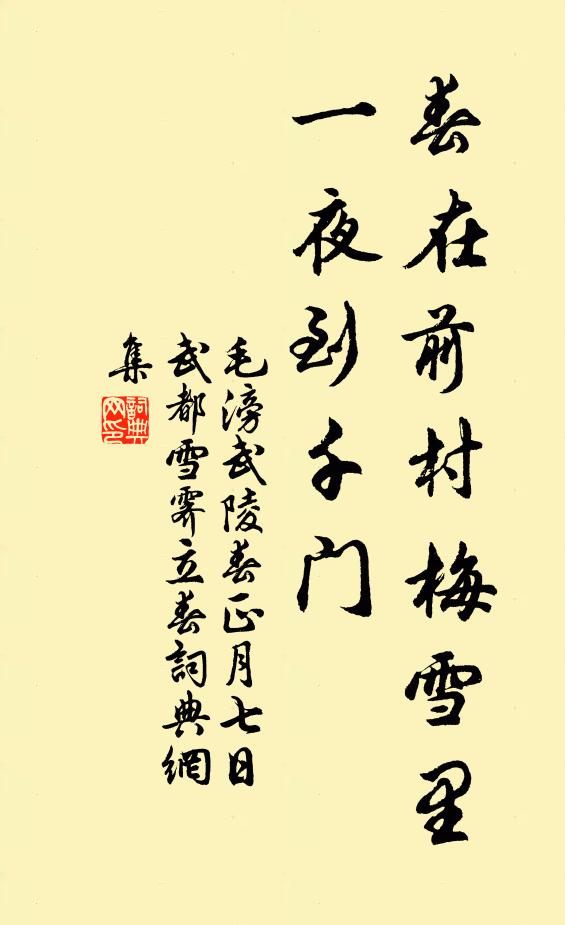 春在前村梅雪里
一夜到千门
毛滂武陵春正月七日
武都雪霁立春詞典網
集
詞典
网印